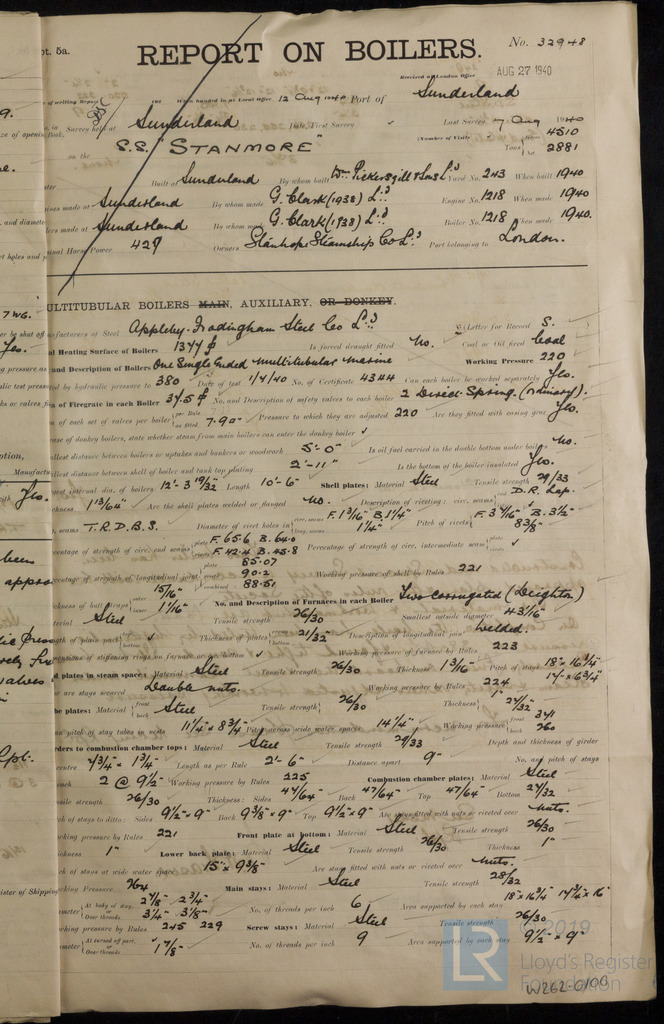 pt. 5a.
REPORT ON BOILERS.
No. 32948
Received at London Office
AUG 27 1940
When handed in at Local Office 12 Aug 1940 Port of Sunderland
Survey held at Sunderland Date, First Survey Last Survey 7 Aug 1940
on the S.S. "STANMORE" (Number of Visits Tons 4510
2881
Built at Sunderland By whom built Wm Pickersgill & Sons Ld Yard No. 243 When built 1940
made at Sunderland By whom made G. Clark (1938) Ld Engine No. 1218 When made 1940
made at Sunderland By whom made G. Clark (1938) Ld Boiler No. 1218 When made 1940.
Horse Power 427 Owners Stanhope Steamship Co Ld Port belonging to London.
ULTITUBULAR BOILERS MAIN, AUXILIARY, OR DONKEY.
of Steel Appleby-Frodingham Steel Co Ld (Letter for Record S.
Heating Surface of Boilers 1344 Is forced draught fitted No. Coal or Oil fired Coal
and Description of Boilers One Single Ended Multitubular Marine Working Pressure 220
by hydraulic pressure to 380 Date of test 1/4/40 No. of Certificate 4344 Can each boiler be worked separately Yes.
of Firegrate in each Boiler 37.5 No. and Description of safety valves to each boiler 2 Direct Spring. (ordinary).
of each set of valves per boiler 7.90 Pressure to which they are adjusted 220 Are they fitted with easing gear Yes.
case of donkey boilers, state whether steam from main boilers can enter the donkey boiler
distance between boilers or uptakes and bunkers or woodwork 5'-0" Is oil fuel carried in the double bottom under boilers No.
distance between shell of boiler and tank top plating 2'-11" Is the bottom of the boiler insulated Yes.
internal dia. of boilers 12'-3 19/32 Length 10'-6" Shell plates: Material Steel Tensile strength 29/33
1 13/64" Are the shell plates welded or flanged No. Description of riveting: circ. seams D.R. Lap.
seams T.R.D.B.S. Diameter of rivet holes in F. 1 3/16 B. 1 1/4" 1 1/4" Pitch of rivets F. 3 7/16 B. 3 1/2" 8 3/8"
of strength of circ. end seams F. 65.6 B. 64.0 Percentage of strength of circ. intermediate seam
F. 42.4 B. 45.8
of strength of longitudinal joint 85.07 Working pressure of shell by Rules 221
90.2
88.51
of butt straps 15/16" 1 1/16" No. and Description of Furnaces in each Boiler Two Corrugated (Deighton)
Steel Tensile strength 26/30 Smallest outside diameter 43 1/16"
Thickness of plates 21/32" Description of longitudinal joint Welded.
of stiffening rings on furnace or bottom Working pressure of furnace by Rules 223
plates in steam space: Material Steel Tensile strength 26/30 Thickness 1 3/16" Pitch of stays 18" x 16 3/4"
are stays secured Double nuts. Working pressure by Rules 224
plates: Material Steel Tensile strength 26/30 Thickness 1" 27/32"
pitch of stay tubes in nests 11 1/4" x 8 3/4" Pitch across wide water spaces 14 1/4" Working pressure 341 260
to combustion chamber tops: Material Steel Tensile strength 29/33 Depth and thickness of girder
centre 7 3/4" x 1 3/4" Length as per Rule 2'-6" Distance apart 9" No. and pitch of stays
2 @ 9 1/2" Working pressure by Rules 225 Combustion chamber plates: Material Steel
strength 26/30 Thickness: Sides 44/64" Back 47/64" Top 47/64" Bottom 27/32"
of stays to ditto: Sides 9 1/2" x 9" Back 9 3/8" x 9" Top 9 1/2" x 9" Are stays fitted with nuts or riveted over Nuts.
pressure by Rules 221 Front plate at bottom: Material Steel Tensile strength 26/30
1" Lower back plate: Material Steel Tensile strength 26/30 Thickness 1"
of stays at wide water space 15" x 9 3/8" Are stays fitted with nuts or riveted over Nuts.
Pressure 264 Main stays: Material Steel Tensile strength 28/32
At body of stay 2 7/8" 2 3/4" No. of threads per inch 6 Area supported by each stay 18" x 16 3/4"
Over threads 3 1/4" 3 1/8"
pressure by Rules 245 229 Screw stays: Material Steel Tensile strength 26/30
At turned off part, Over threads 1 7/8" No. of threads per inch 9 Area supported by each stay 9 1/2" x 9"
© 2019
LR
Lloyd's Register
Foundation
W262-0100